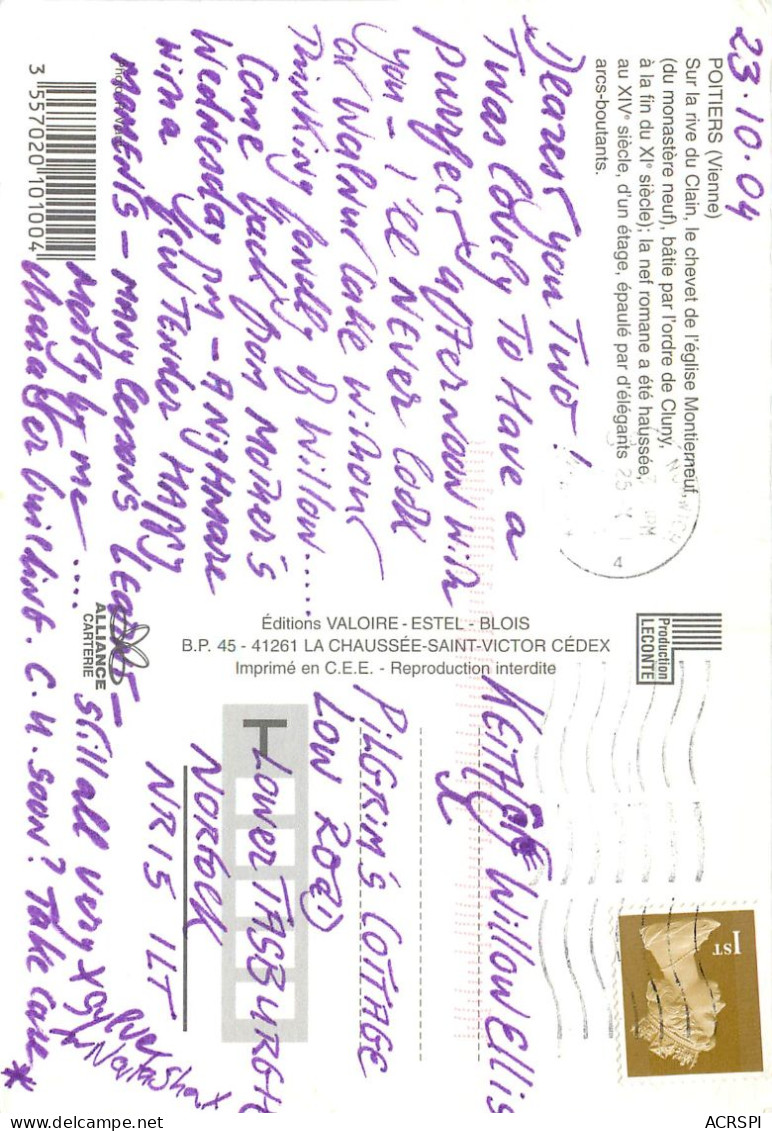 23.10.04
POITIERS (Vienne)
Sur la rive du Clain, le chevet de l'église Montierneuf
(du monastère neuf), bâtie par l'ordre de Cluny,
à la fin du XIe siècle); la nef romane a été haussée,
au XIVe siècle, d'un étage, épaulé par d'élégants
arcs-boutants.
Dearest you Two!
Twas lovely To Have a
purrfect afternoon with
you - I'll NEVER look
at Walnut Cake without
Thinking fondly of Willow.....
Came back from Mother's
Wednesday pm - A Nightmare
with a few Tender HAPPY
MOMENTS - MANY lessons LEARNT -
Mostly by me .... Still all very
Character building. C.U. Soon? Take care
X
Sylver
+ Natasha X
3 557020 101004
ALLIANCE
CARTERIE
Éditions VALOIRE - ESTEL - BLOIS
B.P. 45 - 41261 LA CHAUSSÉE-SAINT-VICTOR CÉDEX
Imprimé en C.E.E. - Reproduction interdite
Production
LECONTE
1ST
KEITH & Willow Ellis
PILGRIM'S COTTAGE
LOW ROAD
LOWER TASBURGH
NORFOLK
NR15 1LT
ACRSPI